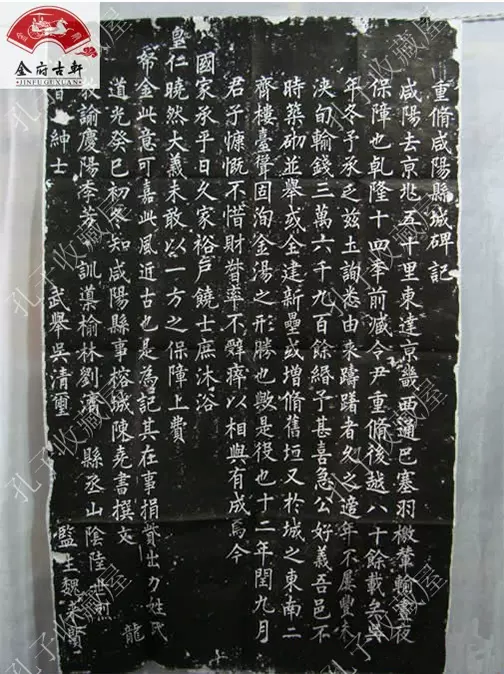 金府古軒
JINFUGUXUAN
重脩咸陽縣城碑記
咸陽去京兆五十里東達京畿西通巴塞羽檄輦輸晝夜
保障也乾隆十四年前臧令尹重脩後越八十餘載矣
年冬予承乏茲土詢悉由來躊躇者久之適年不屢豐未
浹旬輸錢三萬六千九百餘緡予甚喜急公好義吾邑不
時築砌並舉或全建新壘或增脩舊垣又於城之東南二
齊樓臺聳固洵金湯之形勝也歟是役也十二年閏九月
君子慷慨不惜財督率不辭瘁以相與有成焉今
國家承平日久家裕戶饒士庶沐浴
皇仁曉然大義未敢以一方之保障上費
帑金此意可嘉此風近古也是為記其在事捐貲出力姓氏
道光癸巳初冬知咸陽縣事榕城陳堯書撰文
教諭慶陽李芳 訓導榆林劉濱 縣丞山陰陸世烈 龍
首 紳士 武舉吳清璽 監生魏
孔子收藏屋